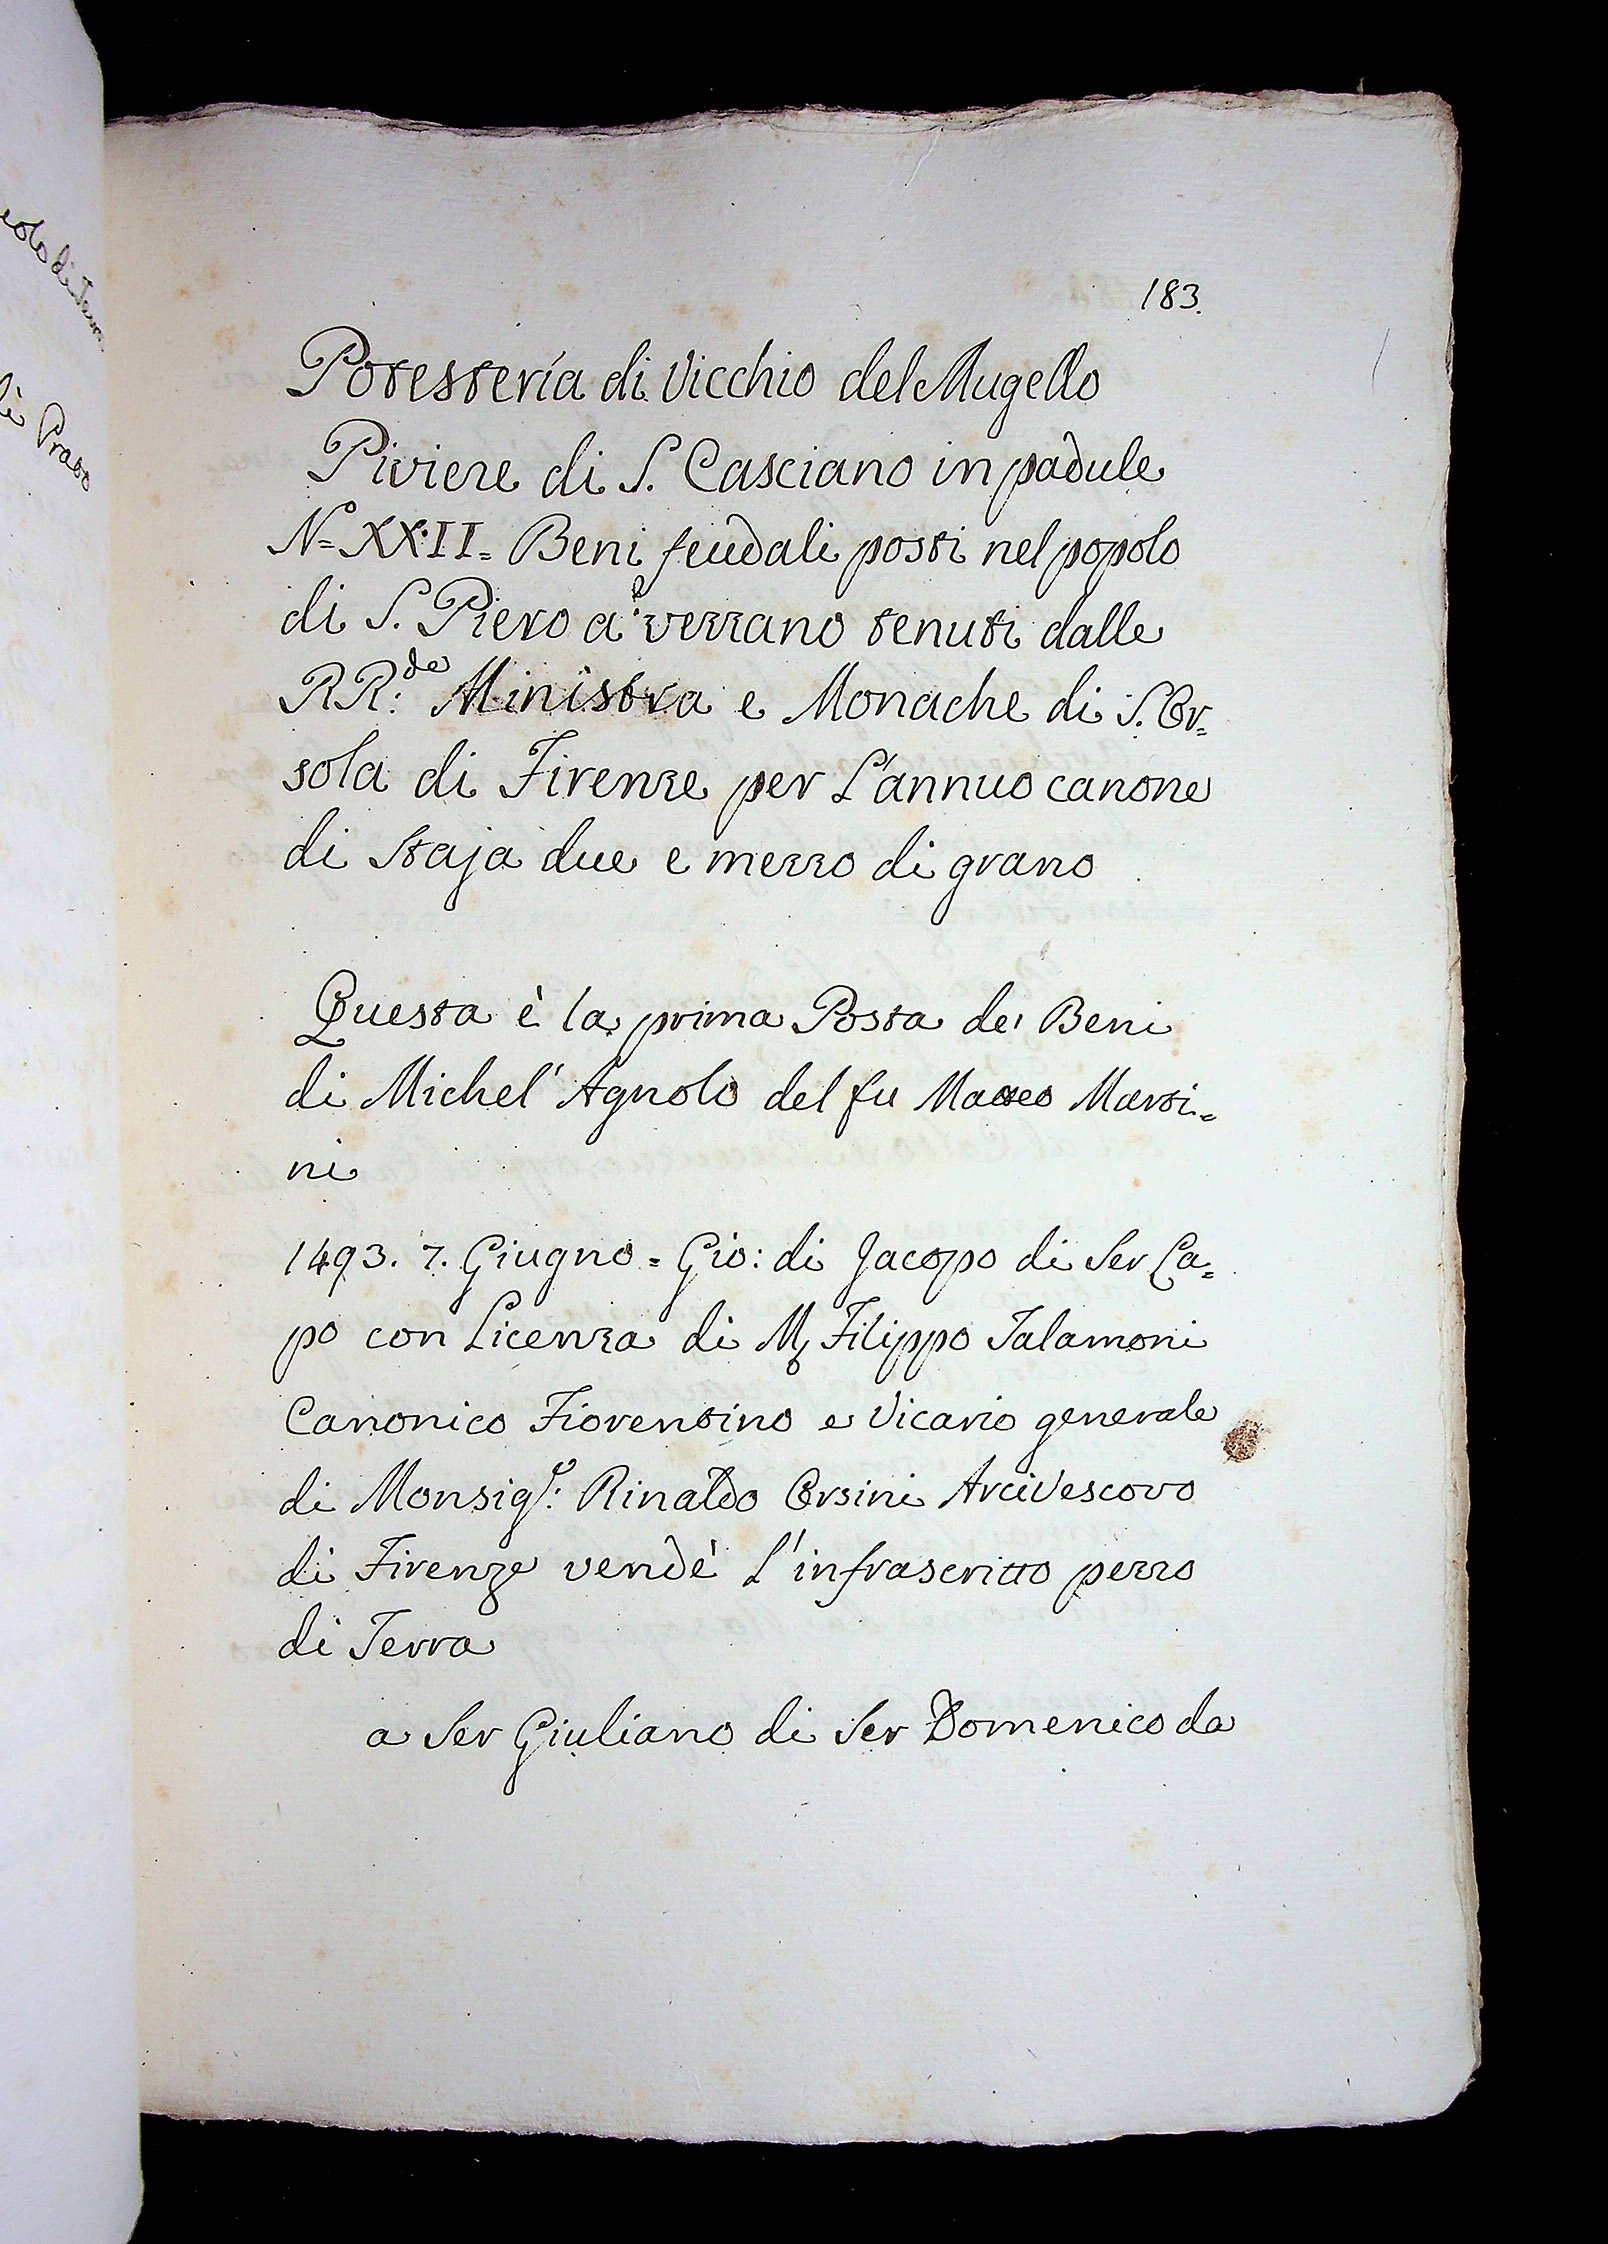 183.
Potesteria di Vicchio del Mugello
Piviere di S. Casciano in padule
N= XXII= Beni feudali posti nel popolo
di S. Piero a verzano tenuti dalle
RR:de Ministra e Monache di S. Or=
sola di Firenze per L'annuo canone
di Staja due e mezzo di grano
Questa è la prima Posta de' Beni
di Michel' Agnolo del fu Matteo Marti=
ni
1493. 7. Giugno = Gio: di Jacopo di Ser La=
po con Licenza di M. Filippo Talamoni
Canonico Fiorentino e Vicario generale
di Monsigr: Rinaldo Orsini Arcivescovo
di Firenze vendè L'infrascritto pezzo
di Terra
a Ser Giuliano di Ser Domenico da